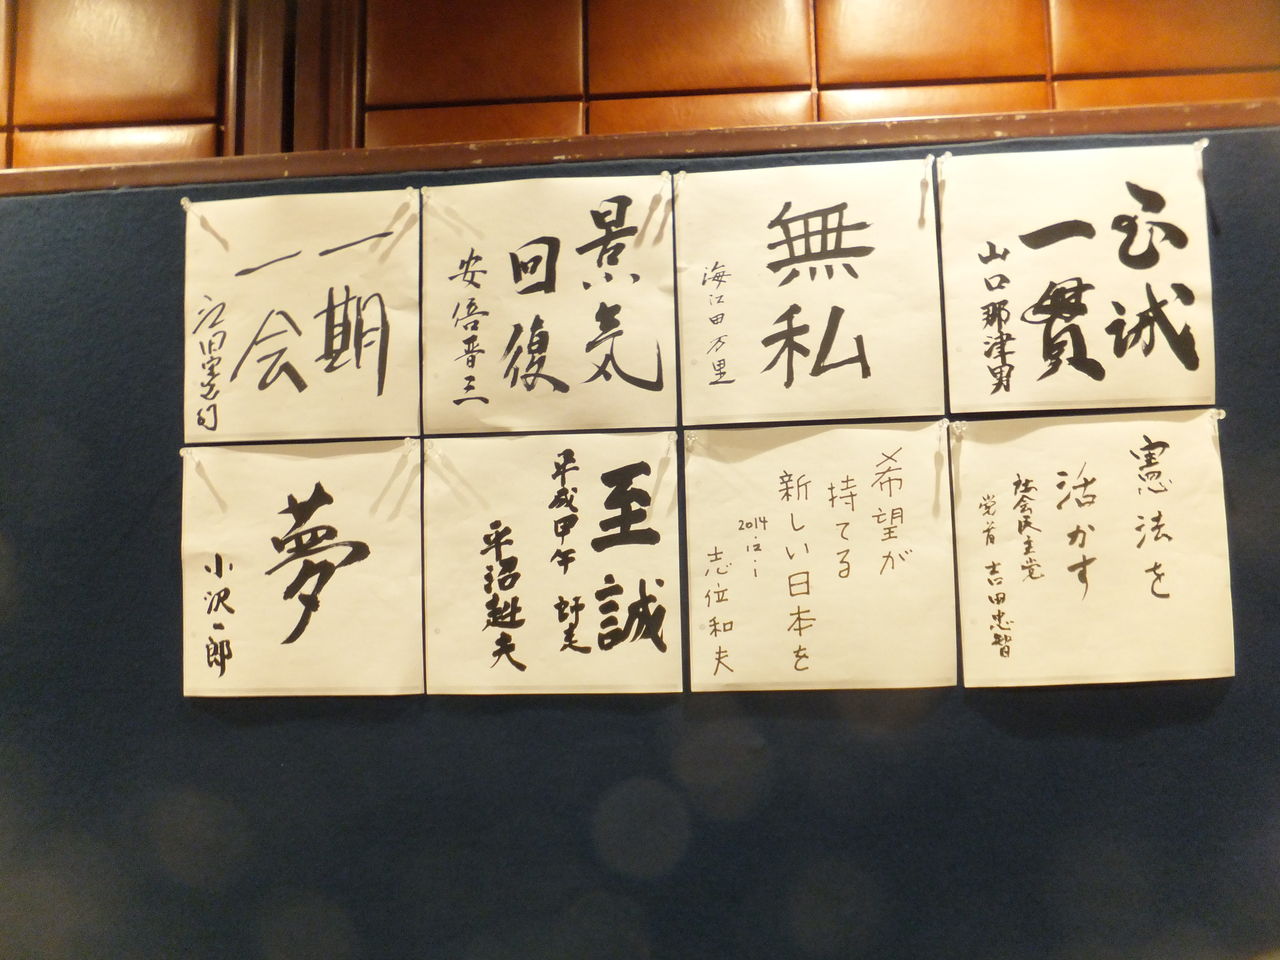 一期
一会
江田憲司
景気
回復
安倍晋三
無
私
海江田万里
至誠
一貫
山口那津男
夢
小沢一郎
至誠
平成甲午 師走
平沼赳夫
希望が
持てる
新しい日本を
2014.12.1
志位和夫
憲法を
活かす
社会民主党
党首 吉田忠智